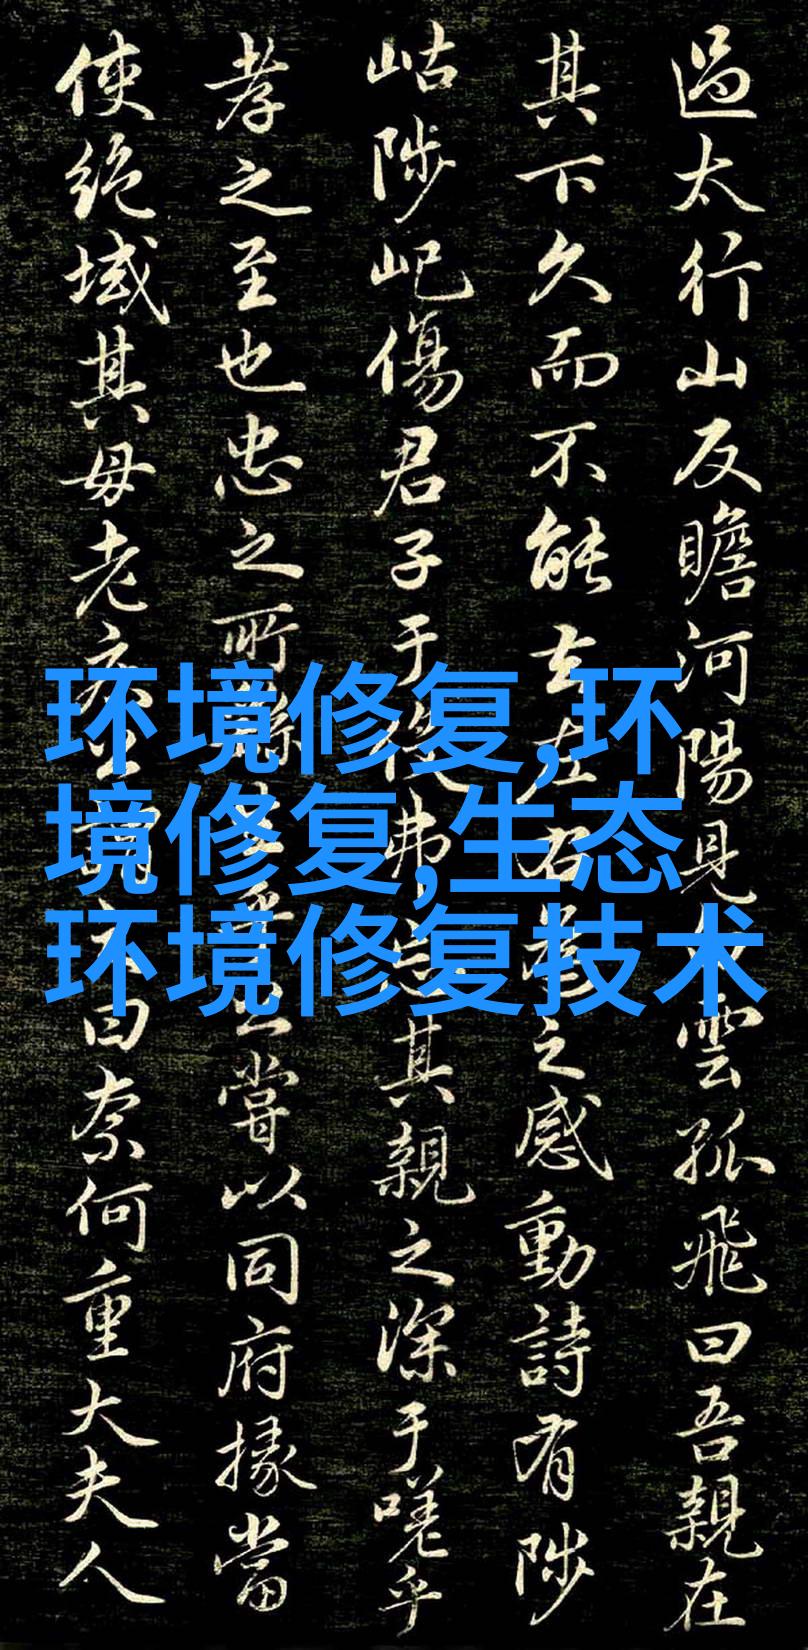 過太行山反瞻河陽見白雲孤飛曰吾親在
其下久而不能去左右為之感動詩有陟
岵陟屺傷君子于役弗忘其親之深于嗟乎
孝之至也忠之所繇生乎公嘗以同府掾當
使絕域其母老疾公謂之曰奈何重大夫人
环境修复,环
境修复,生态
环境修复技术